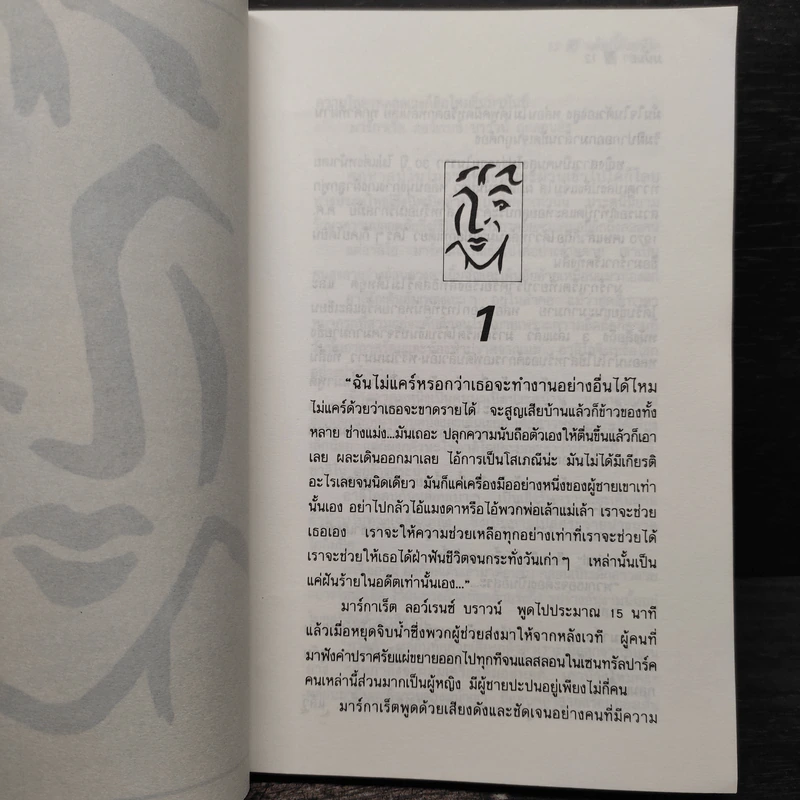 1
“ฉันไม่แคร์หรอกว่าเธอจะทำงานอย่างอื่นได้ไหม
ไม่แคร์ด้วยว่าเธอจะขาดรายได้ จะสูญเสียบ้านแล้วก็ข้าวของทั้ง
หลาย ช่างแม่ง...มันเถอะ ปลุกความนับถือตัวเองให้ตื่นขึ้นแล้วก็เอา
เลย ผละเดินออกมาเลย ไอ้การเป็นโสเภณีน่ะ มันไม่ได้มีเกียรติ
อะไรเลยจนนิดเดียว มันก็แค่เครื่องมืออย่างหนึ่งของผู้ชายเขาเท่า
นั้นเอง อย่าไปกลัวไอ้แมงดาหรือไอ้พวกพ่อเล้าแม่เล้า เราจะช่วย
เธอเอง เราจะให้ความช่วยเหลือทุกอย่างเท่าที่เราจะช่วยได้
เราจะช่วยให้เธอได้ฝ่าฟันชีวิตจนกระทั่งวันเก่าๆ เหล่านั้นเป็น
แค่ฝันร้ายในอดีตเท่านั้นเอง...”
มาร์กาเร็ต ลอว์เรนซ์ บราวน์ พูดไปประมาณ 15 นาที
แล้วเมื่อหยุดจิบน้ำซึ่งพวกผู้ช่วยส่งมาให้จากหลังเวที ผู้คนที่
มาฟังคำปราศรัยแผ่ขยายออกไปทุกทีจนแลสลอนในเซนทรัลปาร์ค
คนเหล่านี้ส่วนมากเป็นผู้หญิง มีผู้ชายปะปนอยู่เพียงไม่กี่คน
มาร์กาเร็ตพูดด้วยเสียงดังและชัดเจนอย่างคนที่มีความ